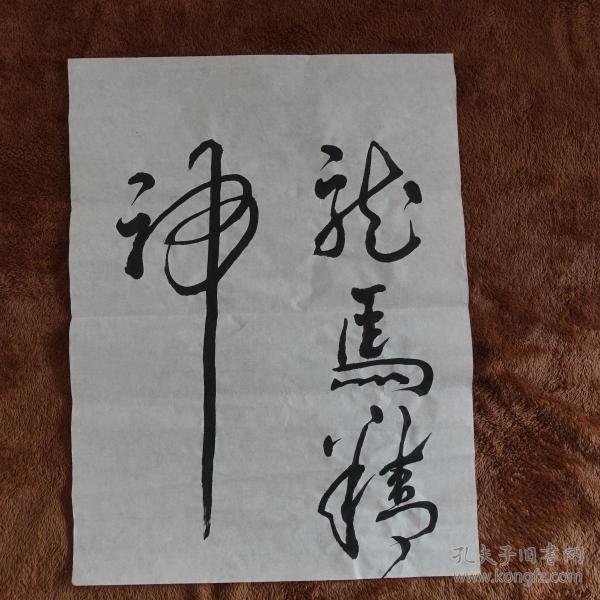 龍馬精
神
孔夫子旧書網
www.kongfz.com